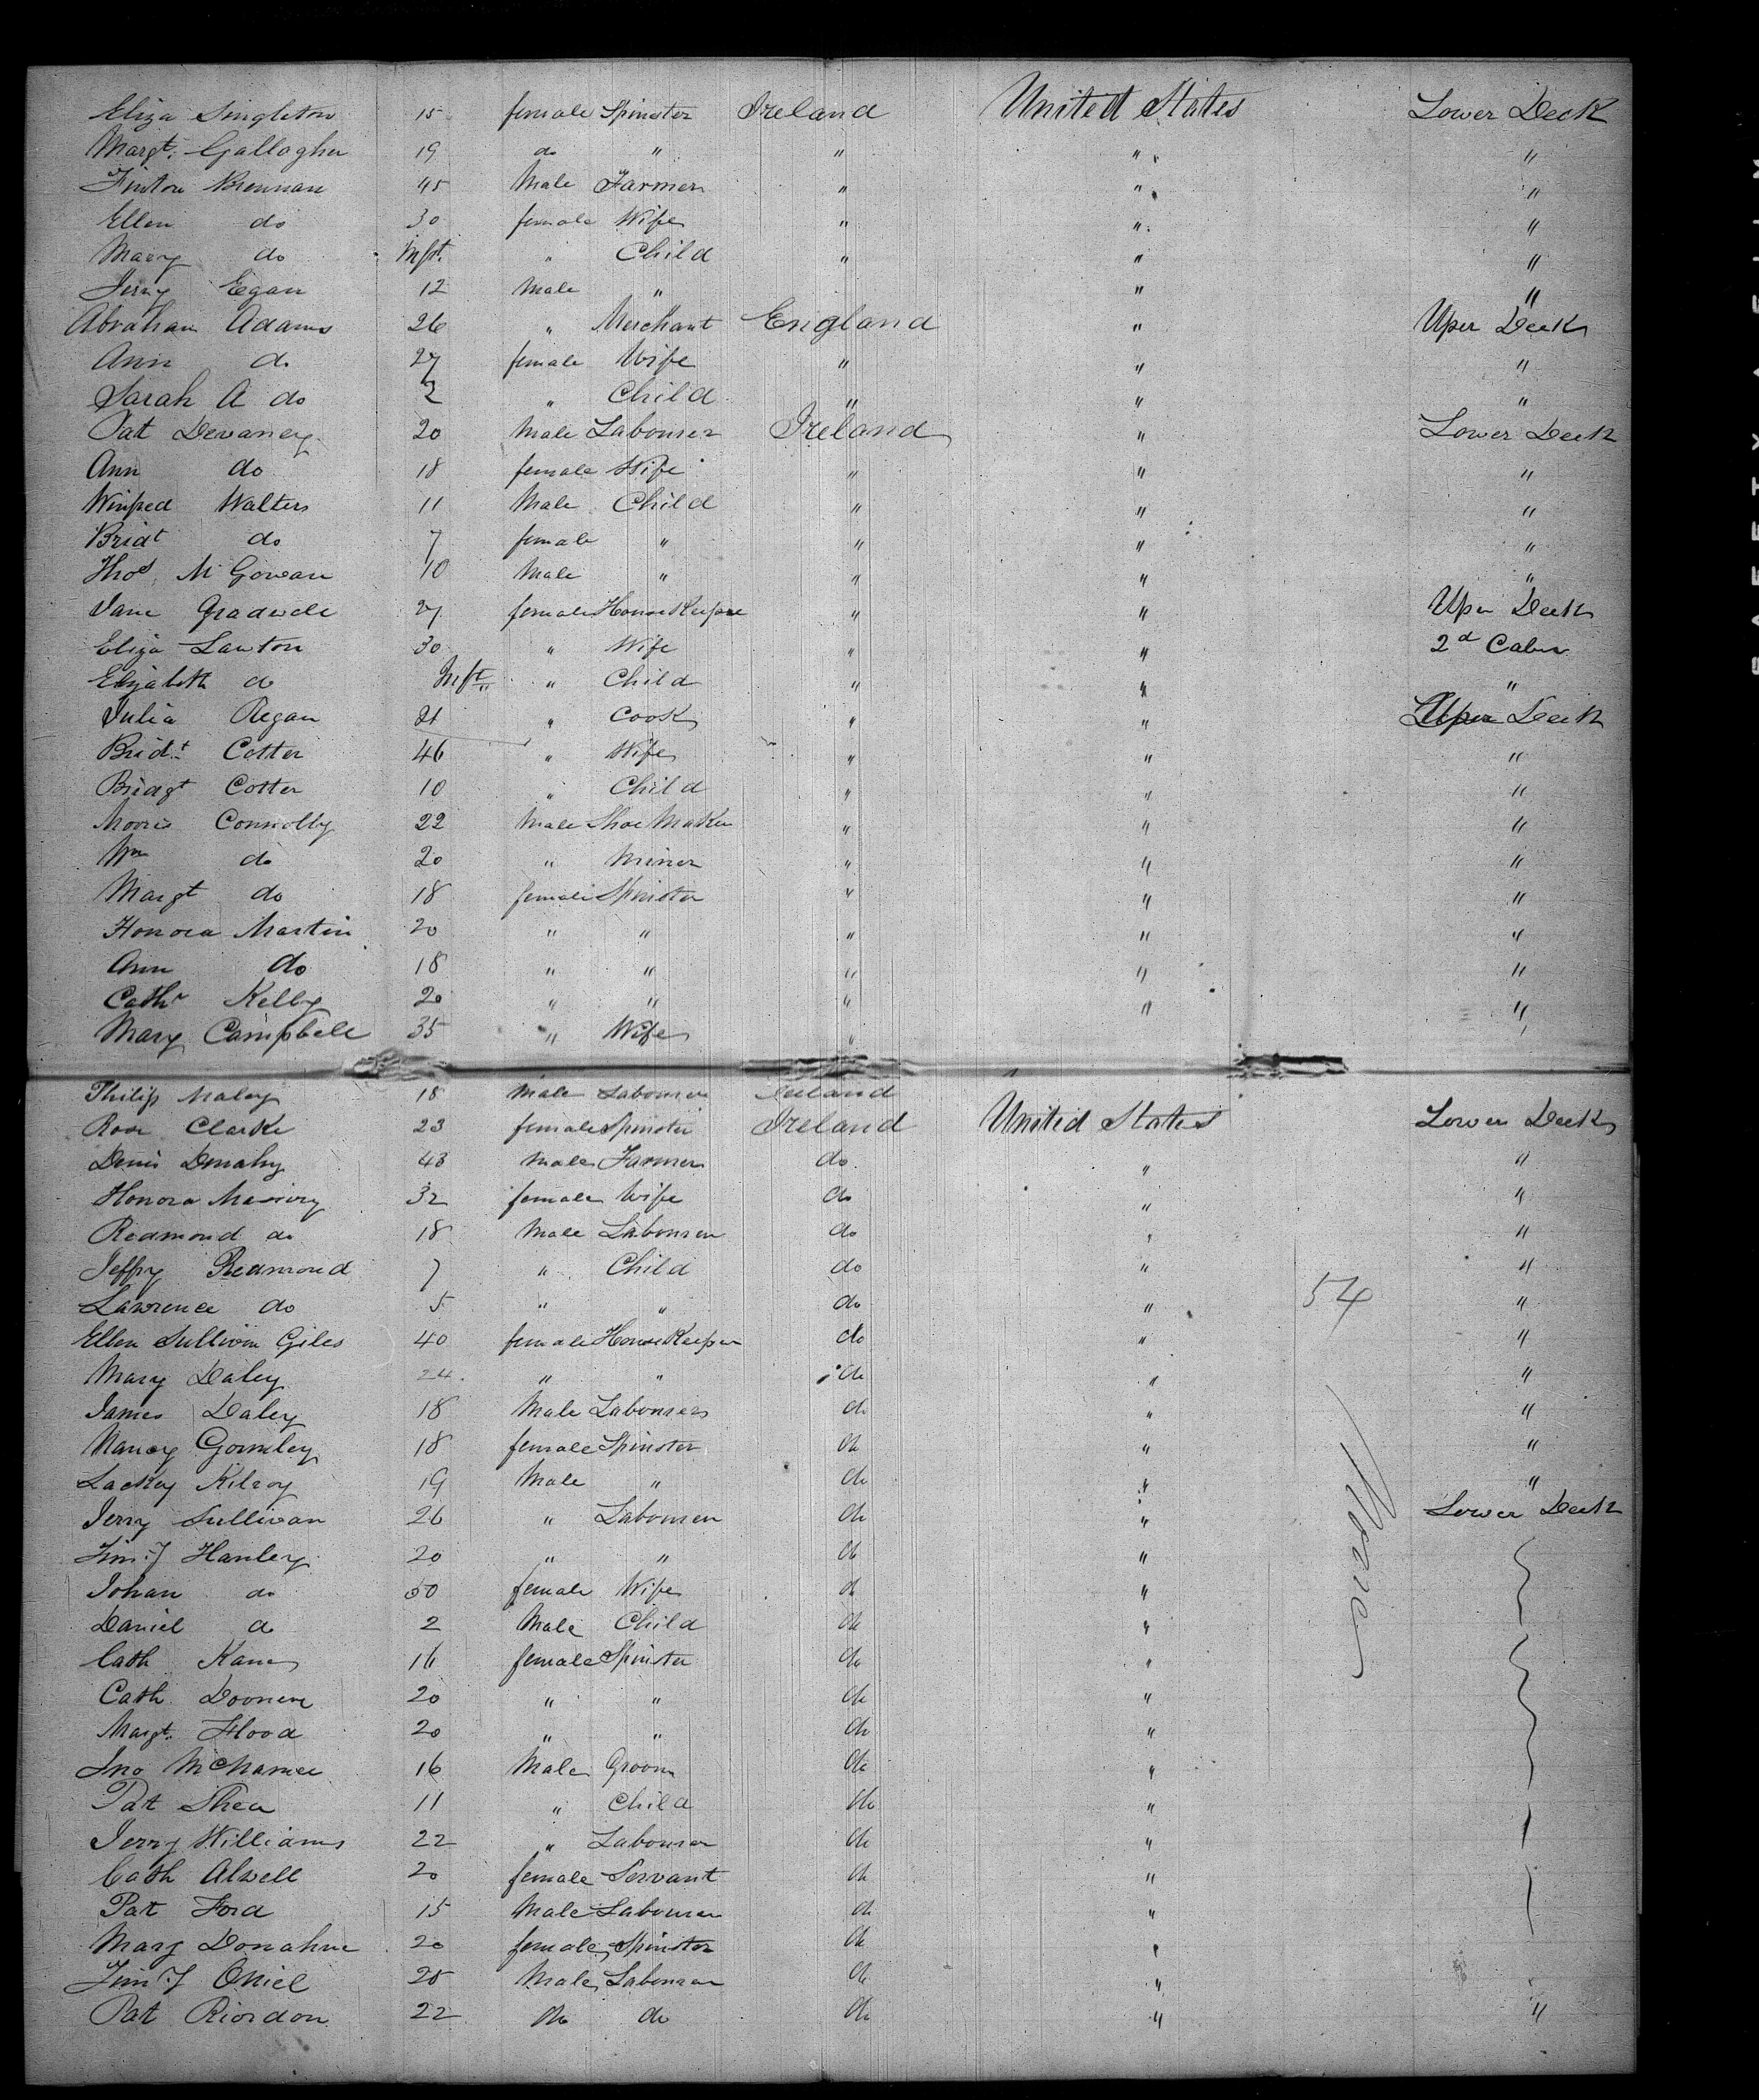 Eliza Singleton 15 female Spinster Ireland United States Lower Deck
Margt. Gallagher 19 do " " " "
Finton Brennan 45 Male Farmer " " "
Ellen do 30 female Wife " " "
Mary do Inft. " Child " " "
Jerry Egan 12 Male " " "
Abraham Adams 26 " Merchant England " Uper Deck
Ann do 27 female Wife " " "
Sarah A do 2 " Child " " "
Pat Devaney 20 Male Labourer Ireland " Lower Deck
Ann do 18 female Wife " " "
Winfred Walters 11 Male Child " " "
Bridt do 7 female " " " "
Thos McGowan 10 Male " " " "
Jane Gradwell 27 female House Keeper " " Uper Deck
Eliza Lawton 30 " Wife " " 2d Cabin
Elizabeth do Inft " Child " " "
Julia Regan 21 " Cook " " Deck
Bridt. Cotter 46 " Wife " " "
Bridgt Cotter 10 " Child " " "
Morris Connolly 22 Male Shoe Maker " " "
Wm do 20 " Miner " " "
Margt do 18 female Spinster " " "
Honora Martin 20 " " " " "
Ann do 18 " " " " "
Cathr Kelly 20 " " " " "
Mary Campbell 35 " Wife " "
Philip Maley 18 Male Labourer Ireland
Rose Clarke 23 female Spinster Ireland United States Lower Deck
Denis Denahy 43 Male Farmer do " "
Honora 32 female Wife do " "
Redmond do 18 Male Labourer do " "
Jeffry Redmond 7 " Child do " "
Lawrence do 5 " " do " 54 "
Ellen Sullivan Giles 40 female House Keeper do " "
Mary Daley 24 " " do " "
James Daley 18 Male Labourers do " "
Nancy Gormley 18 female Spinster do " "
Lackey Kilroy 19 Male " do " "
Jerry Sullivan 26 " Labourer do " Lower Deck
Tim:y Hanley 20 " " do "
Johan do 50 female Wife do "
Daniel do 2 Male Child do "
Cath Kane 16 female Spinster do "
Cath Doonan 20 " " do "
Margt. Flood 20 " " do "
Jno McNamee 16 Male Groom do "
Pat Shea 11 " Child do "
Jerry Williams 22 " Labourer do "
Cath Alwell 20 female Servant do "
Pat Ford 15 Male Labourer do "
Mary Donahue 20 female Spinster do "
Tim:y Oniel 25 Male Labourer do " "
Pat Riordon 22 do do do " "